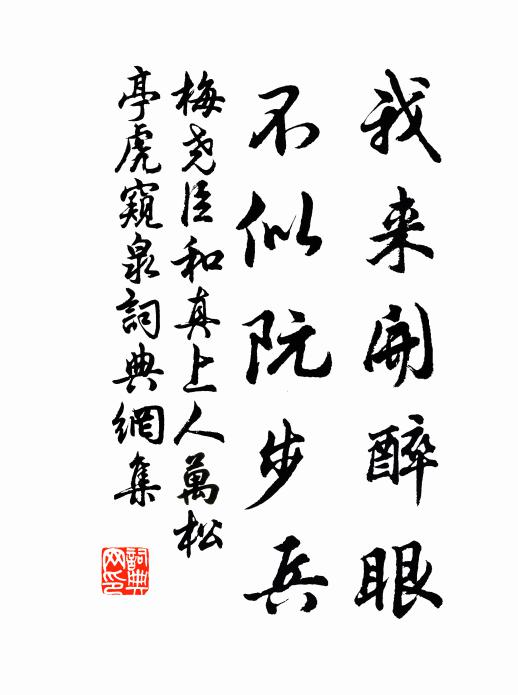 我来開醉眼
不似阮步兵
梅尧臣和真上人萬松
亭虎窺泉詞典網集
詞典
网印